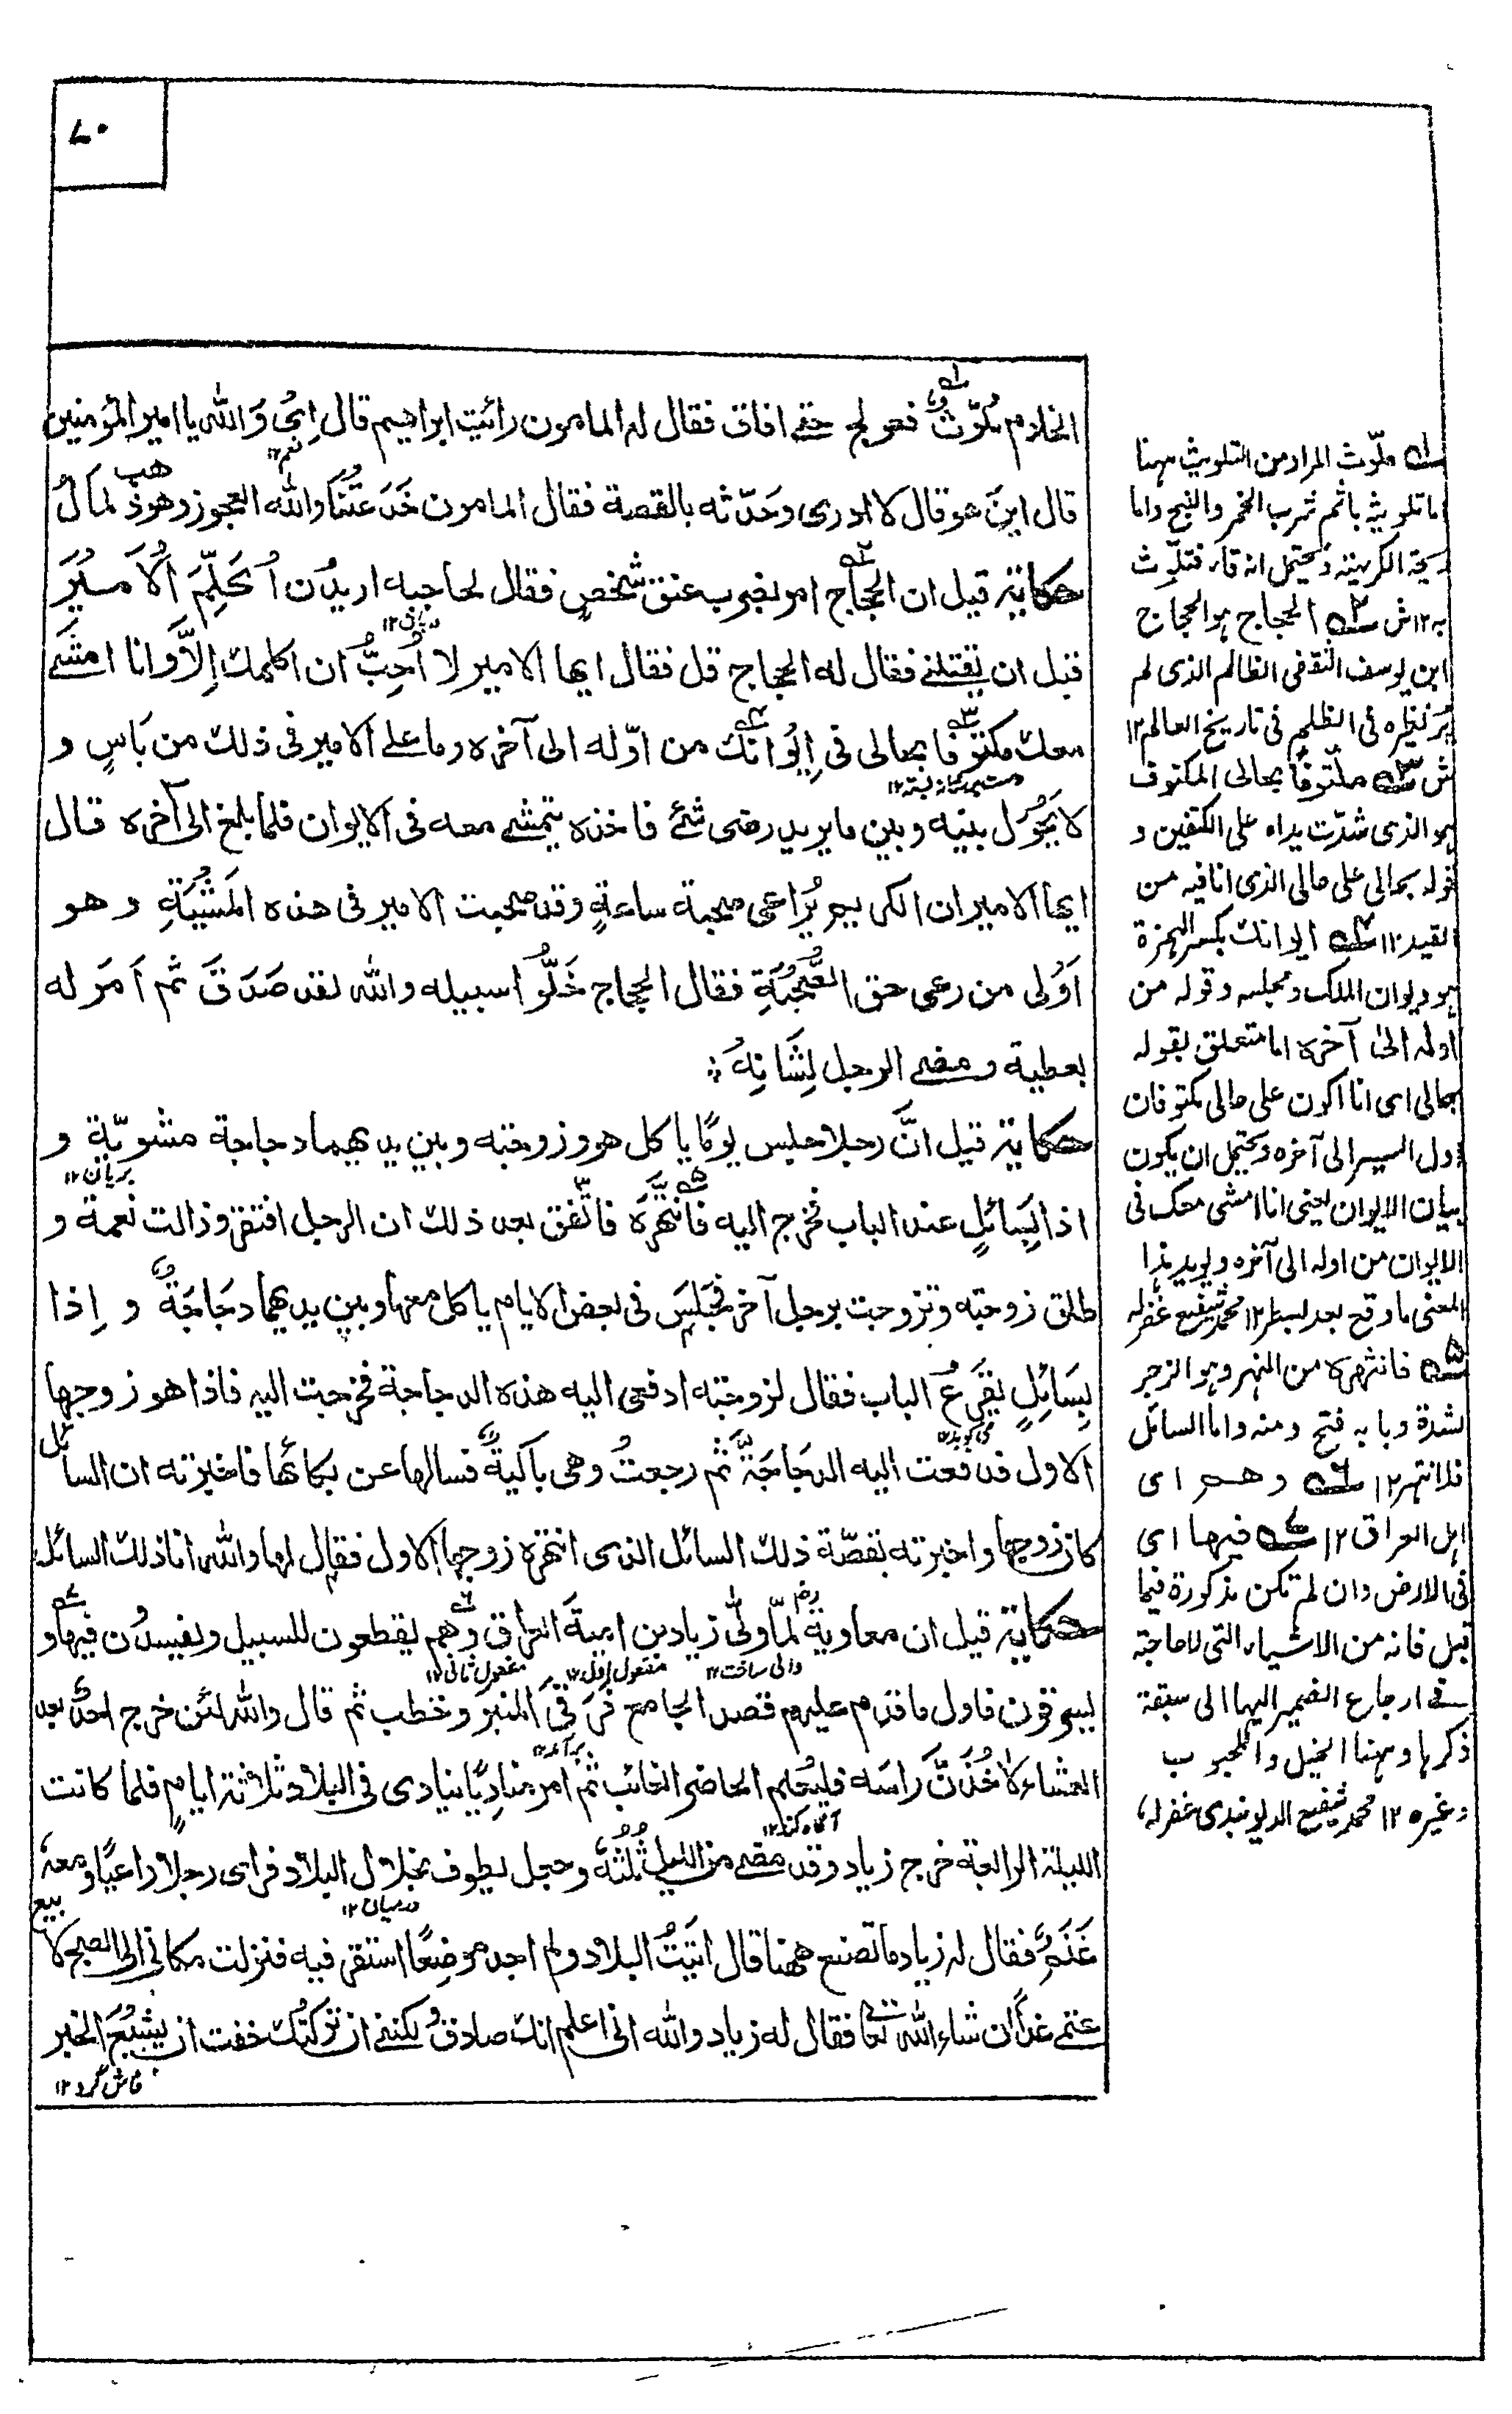 ٧٠
الخادم مُلَوَّثٌ فعولج حتے افاق فقال له المامون رائيت ابراهيم قال اِیْ وَالله يا امير المؤمنين
قال اينَ هو قال لا ادری وحَدّثه بالقصة فقال المامون خَدَعَتْنَا والله العجوز وهو ذهب لمالٍ
حكاية قيل ان الحجاج امر بضرب عنق شخصٍ فقال لحاجبه اريدُ ان اُكَلِّمَ الْاَمِيْرَ
قبل ان يقتلنے فقال له الحجاج قل فقال ايها الامير لا اُحِبُّ ان اكلمك اِلاَّ وانا امشے
معك مكتوفًا بحالی فی اِيْوانك من اوّله الی آخره وما علے الامير فی ذلك من بَاسٍ و
لا يَحُوْلُ بينه وبين ما يريد رضی شئے فاخذه يتمشے معه فی الايوان فلما بلغ الی آخره قال
ايها الامير ان الكريم يُرَاعی صحبة ساعةٍ وقد صحبت الامير فی هذه المَشْيَةِ وهو
اَوْلی من رعی حق الصُّحْبَةِ فقال الحجاج خَلُّوا سبيله والله لقد صَدَقَ ثم اَمَرَ له
بعطية ومضے الرجل لِشَانِهٖ
حكاية قيل انَّ رجلا جلس يومًا ياكل هو وزوجته وبين يديهما دجاجة مشويّة و
اذا بِسَائلٍ عند الباب فخرج اليه فَانْتَهَرَهُ فاتّفق بعد ذلك ان الرجل افتقر وزالت نعمة و
طلق زوجته وتزوجت برجل آخر فجَلَسَ فی بعض الايام ياكل معها وبين يديهما دجَاجَةٌ و اِذا
بِسَائِلٍ يقرَعُ الباب فقال لزوجته ادفعی اليه هذه الدجاجة فخرجت اليه فاذا هو زوجها
الاول فدفعت اليه الدجَاجَةَ ثم رجعتْ وهی باكيةٌ فسالها عن بكائها فاخبرته ان السائل
كان زوجها واخبرته بقصّة ذلك السائل الذی انتهره زوجها الاول فقال لها والله انا ذلك السائل
حكاية قيل ان معاوية رض لمّا ولّی زياد بن ابيهٖ العراق وهم يقطعون للسبيل ويفسدُن فيها و
يسرقون فاول ما قدم عليهم قصد الجامع فرَقِیَ المنبر وخطب ثم قال والله لئن خرج احدٌ بعد
العشاء لاٰخُذَنَّ راسَه فليُعلم الحاضر الغائب ثم امر مناديًا ينادی فی البلاد ثلاثة ايامٍ فلما كانت
الليلة الرابعة خرج زياد وقد مضے من الليل ثُلُثُهٗ وجعل يطوف بخلال البلاد فرای رجلا راعيًا ومعه
غَنَمٌ فقال له زياد ما تصنع ههنا قال اتيتُ البلاد ولم اجد موضِعًا استقر فيه فنزلت مكانی الی الصبح لابيع
غنمے غدًا ان شاء الله تعالی فقال له زياد والله انی اعلم انك صادق ولكننے ان تركتُك خفت ان يشيْعَ الخبر
نعم١٢
دربان١٢
بريان١٢
والی ساخت١٢
مفعول اول١٢
مفعول ثانی١٢
برآمد١٢
آگاه كند١٢
درميان١٢
فاش گردد١٢
١ه ملّوث المراد من التلويث ههنا
اما تلويثه باثم شرب الخمر والنبيح واما
ريحة الكريهة ويحتمل انه قاء فتلوّث
به١٢ش ٢ه الحجاج هو الحجاج
ابن يوسف الثقفی الظالم الذی لم
يُرَ نظيره فی الظلم فی تاريخ العالم١٢
ش ٣ه ملتوفًا بحالی المكتوف
هو الذی شدّت يداه علی الكتفين و
قوله بحالی علی حالی الذی انا فيه من
القيد١٢ ٤ه ايوانك بكسر الهمزة
هو ديوان الملك ومجلسه وقوله من
اوله الی آخره اما متعلق بقوله
بحالی ای انا اكون علی حالی مكتوفان
اول السير الی آخره ويحتمل ان يكون
بيان الايوان يعنی انا امشی معك فی
الايوان من اوله الی آخره ويويد هذا
المعنی ما وقع بعد بسطر١٢ محمد شفيع غفرله
٥ه فانتهره من النهر وهو الزجر
بشدة وبابه فتح ومنه واما السائل
فلا تنهر١٢ ٦ه وهم ای
اهل العراق١٢ ٧ه فيها ای
فی الارض وان لم تكن مذكورة فيما
قبل فانه من الاشياء التی لا حاجة
فے ارجاع الضمير اليها الی سبقة
ذكرها وههنا الخيل والمحبوب
وغيره ١٢ محمد شفيع الديوبندی غفرله،